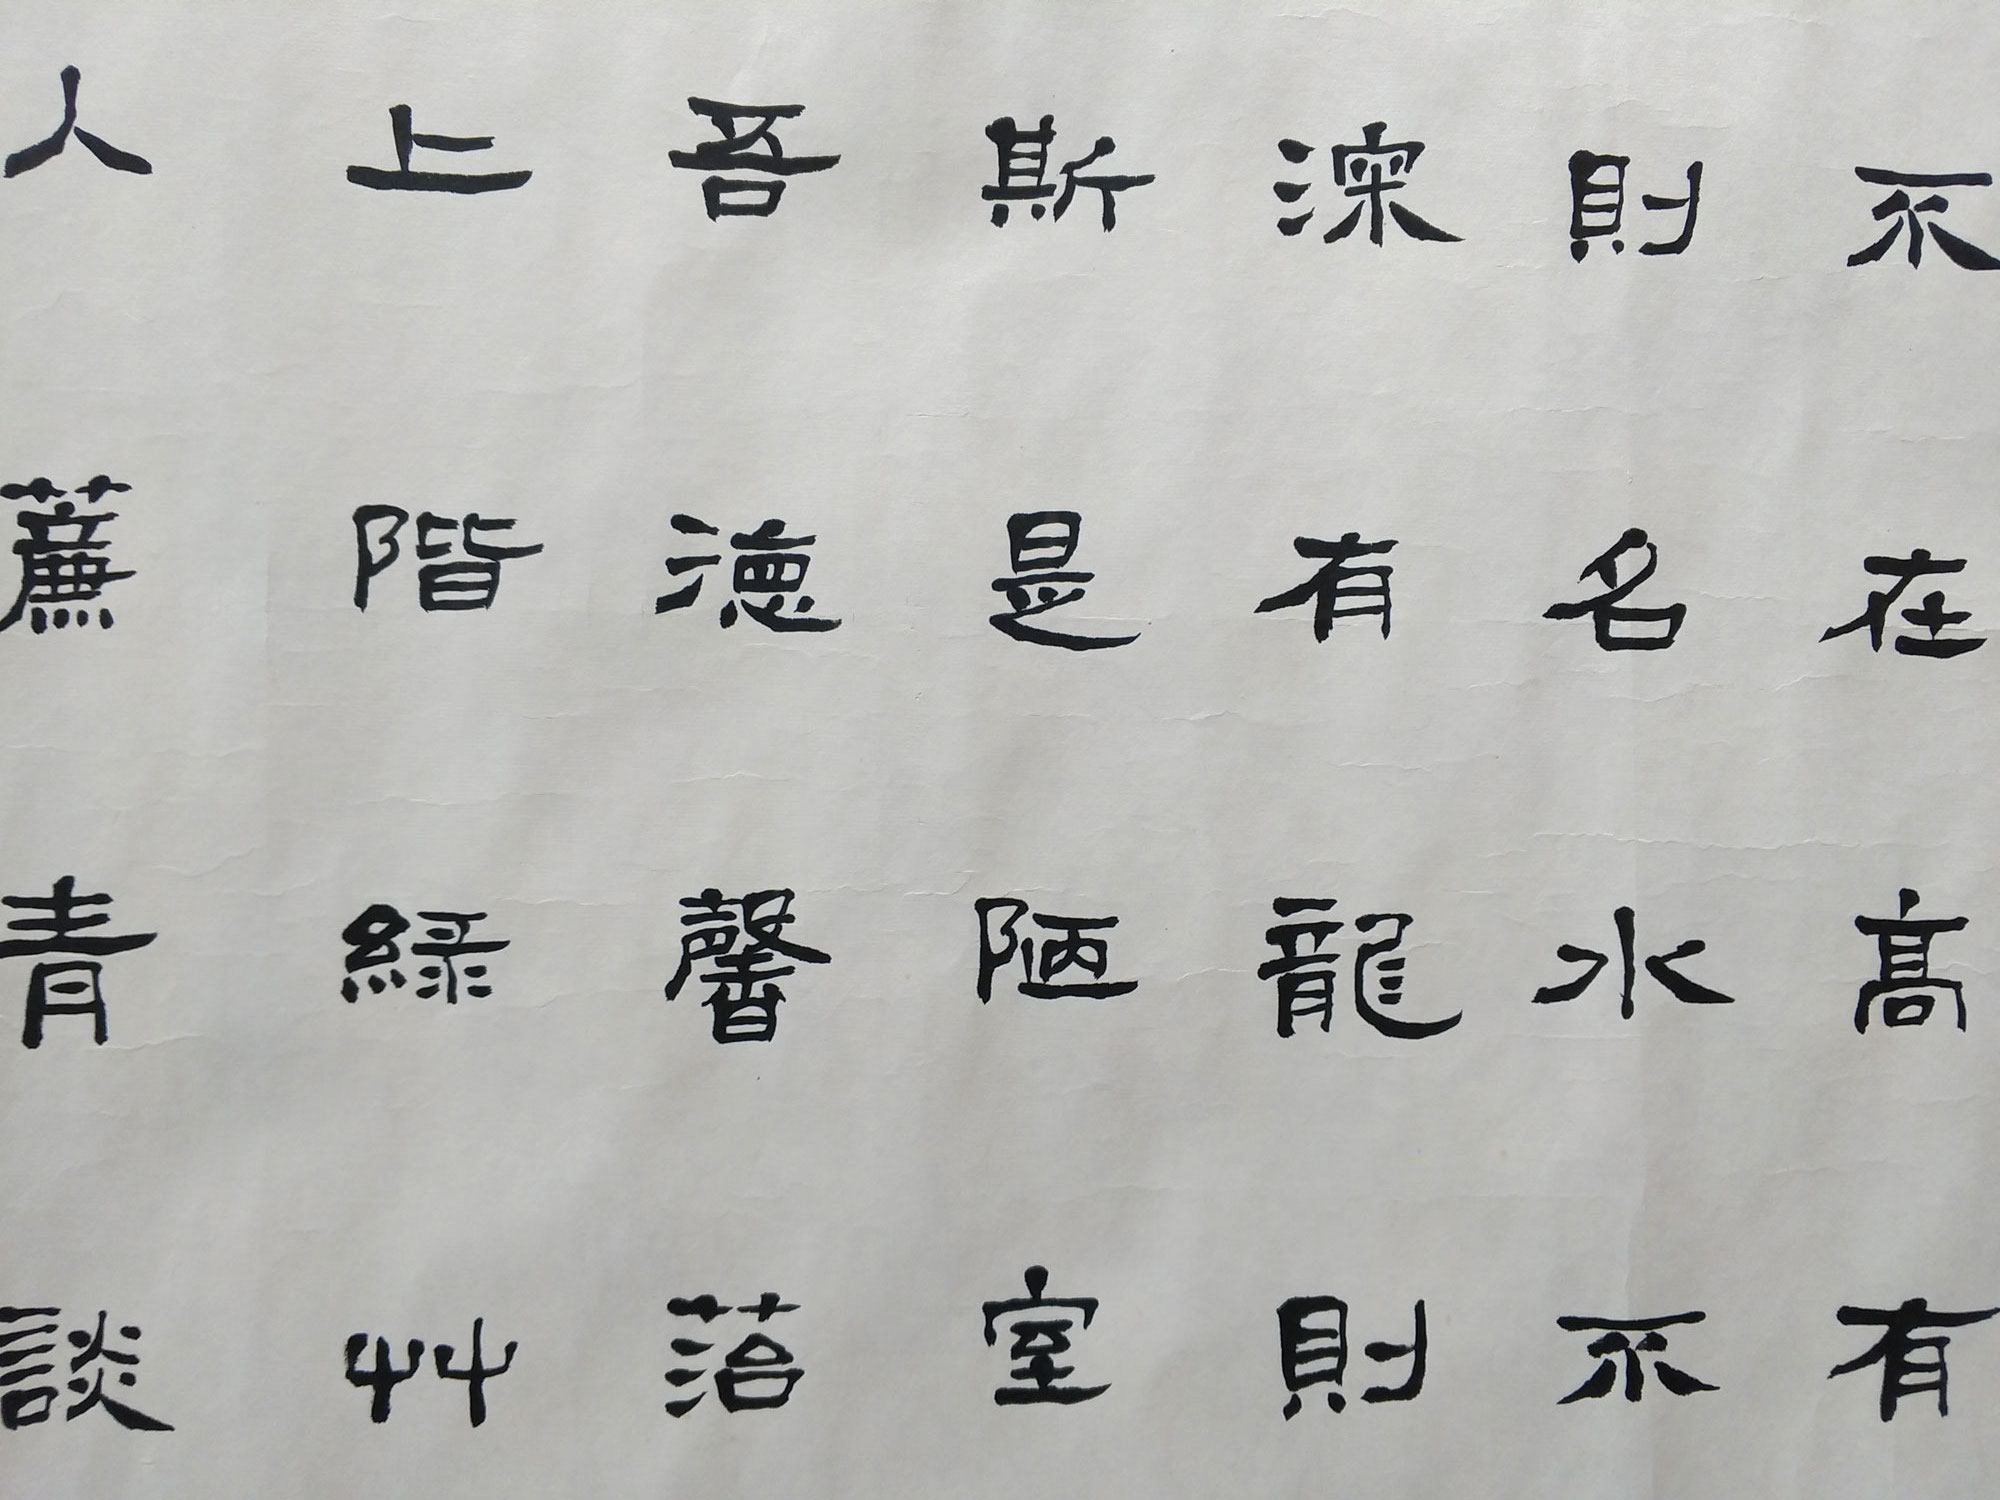 不在高有
則名水不
深有龍則
斯是陋室
吾德馨菭
上階綠艸
入簾青談